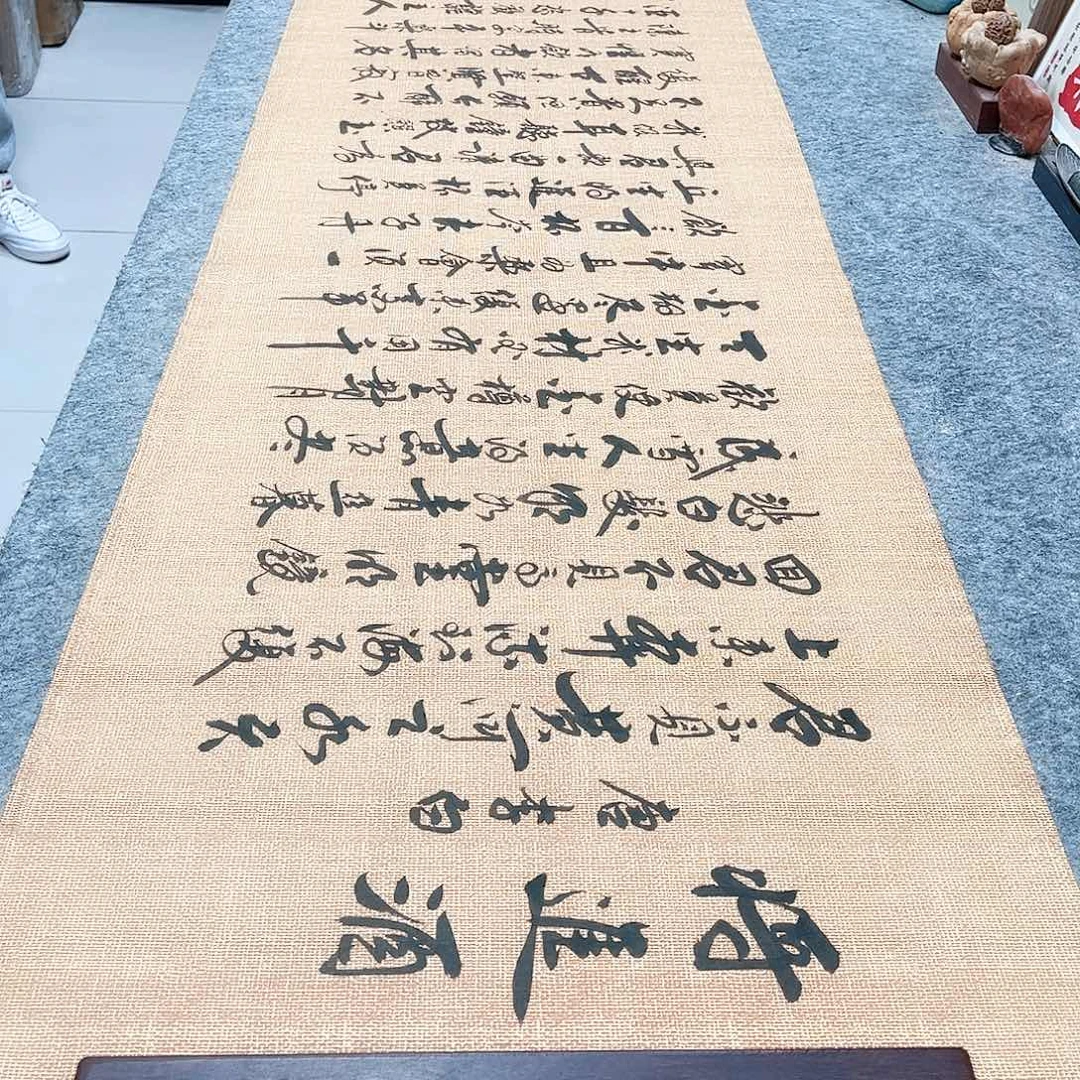 将進酒
唐李白
君不見黄河之水天
上来奔流到海不復
回君不見高堂明鏡
悲白髮朝如青絲暮
成雪人生得意須尽
歡莫使金樽空對月
天生我材必有用千
金散尽還復来烹羊
宰牛且為樂會須一
飲三百杯岑夫子丹
丘生将進酒杯莫停
與君歌一曲請君為
我傾耳聽鐘鼓饌玉
不足貴但願長醉不
復醒古来聖賢皆寂
寞惟有飲者留其名
陳王昔時宴平樂斗
酒十千恣歡謔主人